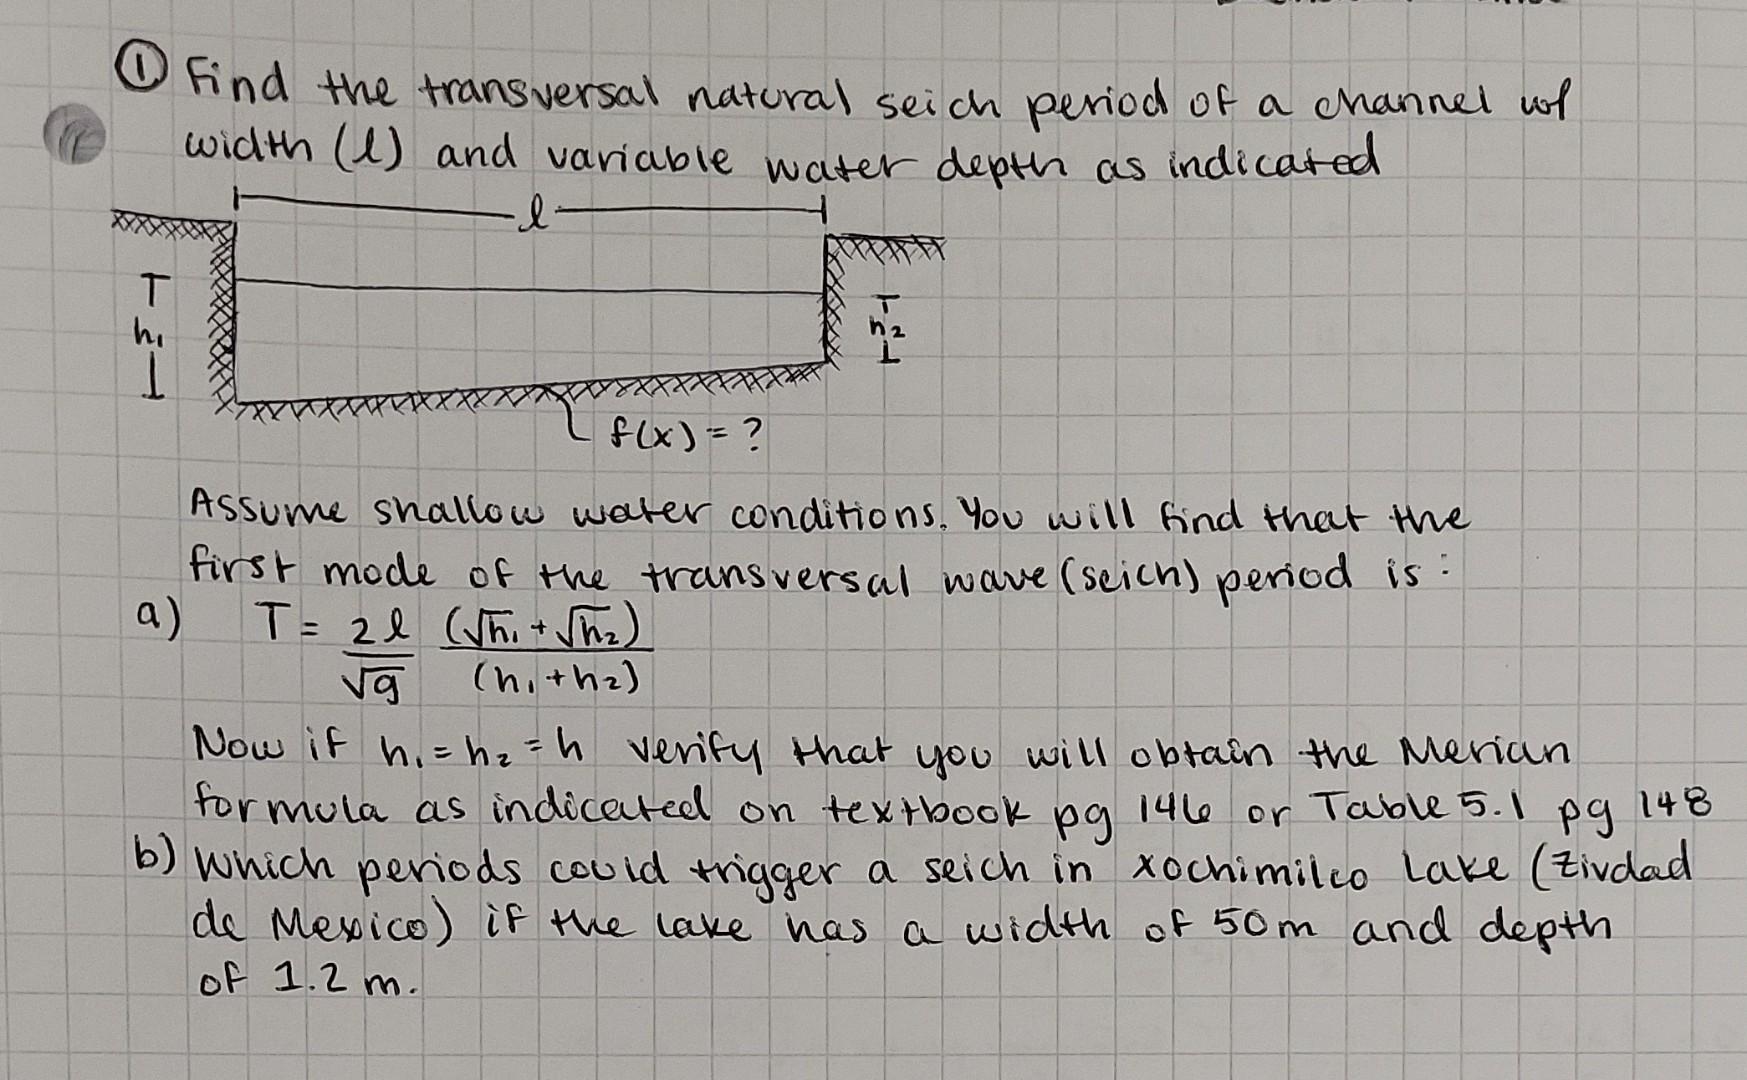 ① Find the transversal natural seich period of a channel w/
width (l) and variable water depth as indicated
l
h₁
h₂
f(x) = ?
Assume shallow water conditions. You will find that the
first mode of the transversal wave (seich) period is:
a) T = 2l/√g (√h₁ + √h₂)/(h₁ + h₂)
Now if h₁ = h₂ = h verify that you will obtain the Merian
formula as indicated on textbook pg 146 or Table 5.1 pg 148
b) Which periods could trigger a seich in xochimilco Lake (Zivdad
de Mexico) if the lake has a width of 50m and depth
of 1.2 m.